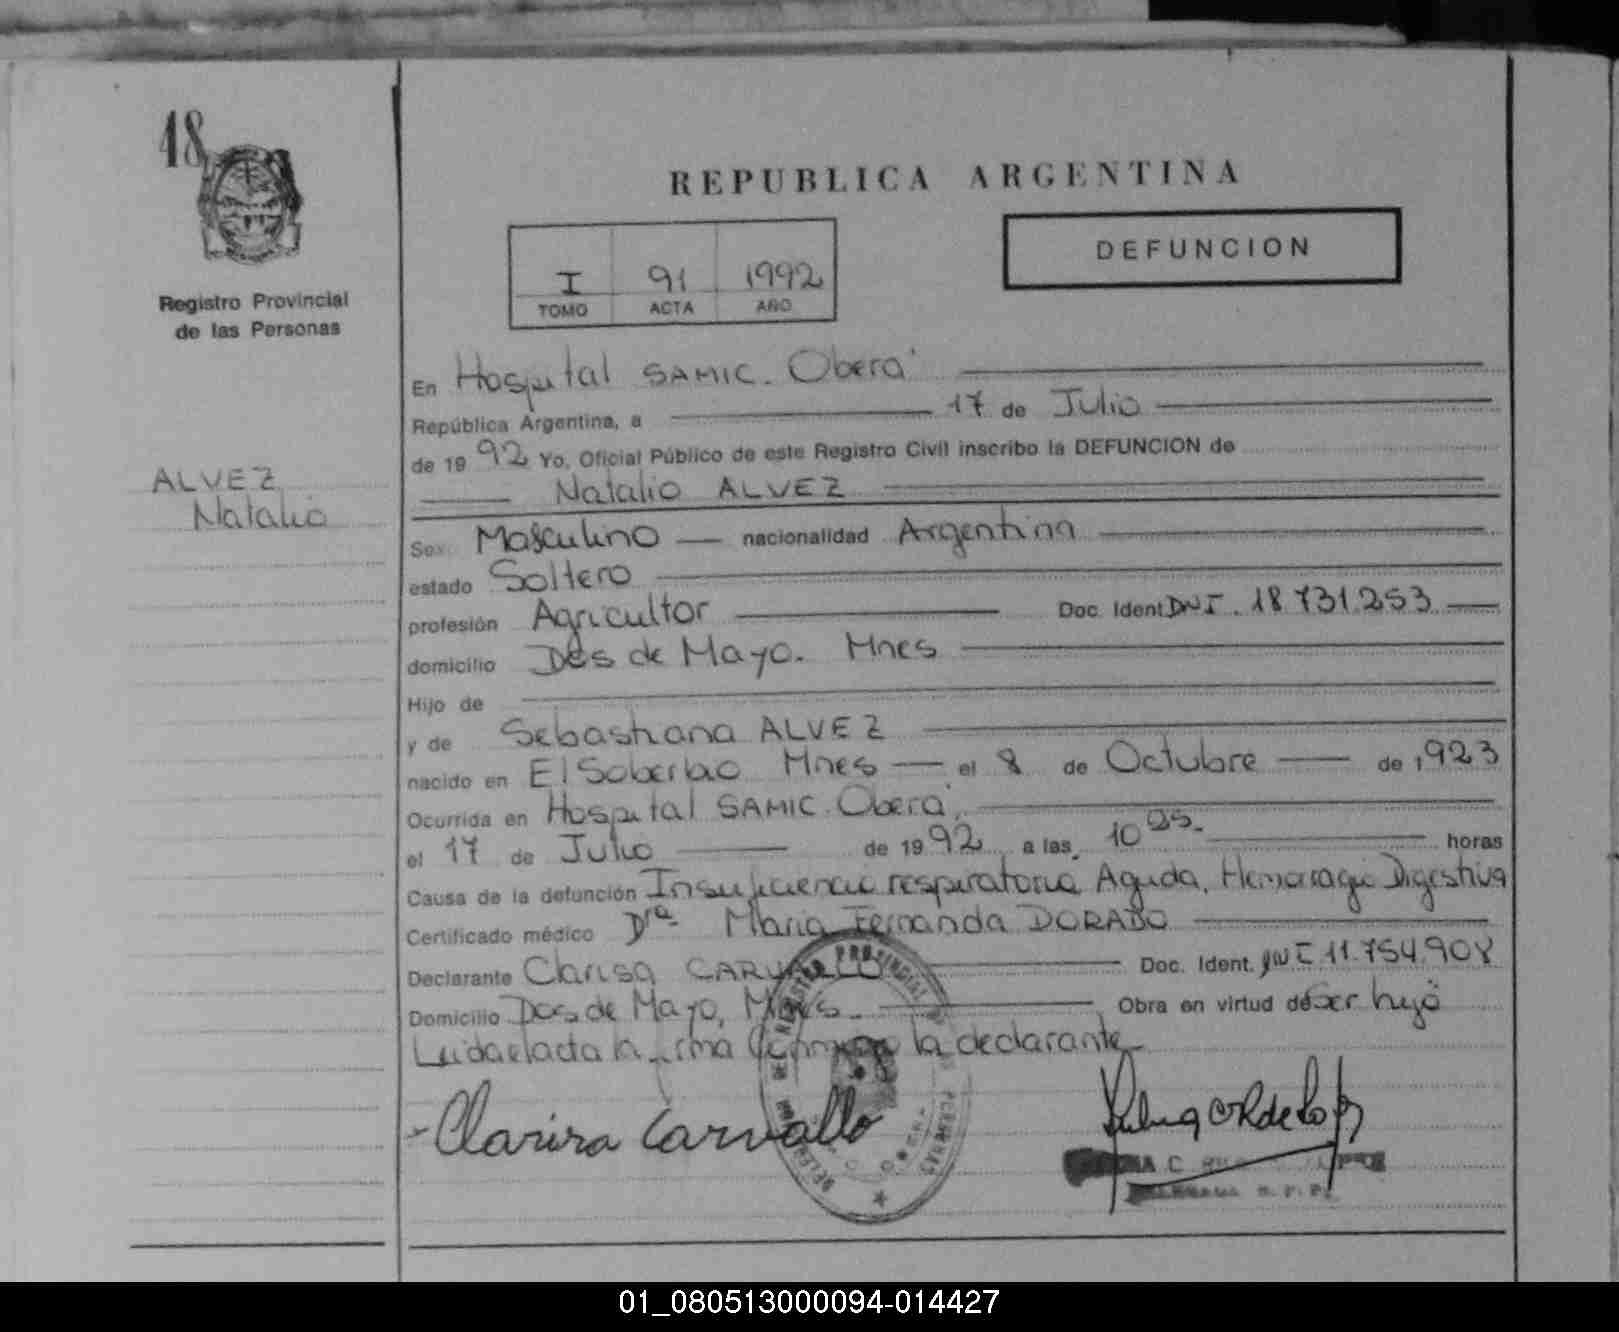 18
Registro Provincial
de las Personas
ALVEZ
Natalio
REPUBLICA ARGENTINA
I 91 1992
TOMO ACTA AÑO
DEFUNCION
En Hospital SAMIC. Oberá
República Argentina, a 17 de Julio
de 1992 Yo, Oficial Público de este Registro Civil inscribo la DEFUNCION de
Natalio ALVEZ
Sexo Masculino nacionalidad Argentina
estado Soltero
profesión Agricultor Doc. Ident DNI. 18.731.253
domicilio Dos de Mayo. Mnes
Hijo de
y de Sebastiana ALVEZ
nacido en El Soberbio Mnes el 8 de Octubre de 1923
Ocurrida en Hospital SAMIC. Oberá,
el 17 de Julio de 1992 a las 10 25 horas
Causa de la defunción Insuficiencia respiratoria Aguda, Hemorragia Digestiva
Certificado médico Dra María Fernanda DORADO
Declarante Clarisa CARVALLO Doc. Ident. DNI 11.754.908
Domicilio Dos de Mayo, Mnes. Obra en virtud de Ser
Leida el acta la la declarante
Clarisa Carvallo
01_080513000094-014427